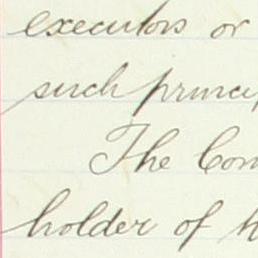 executors or
such princip
The Com
holder of t